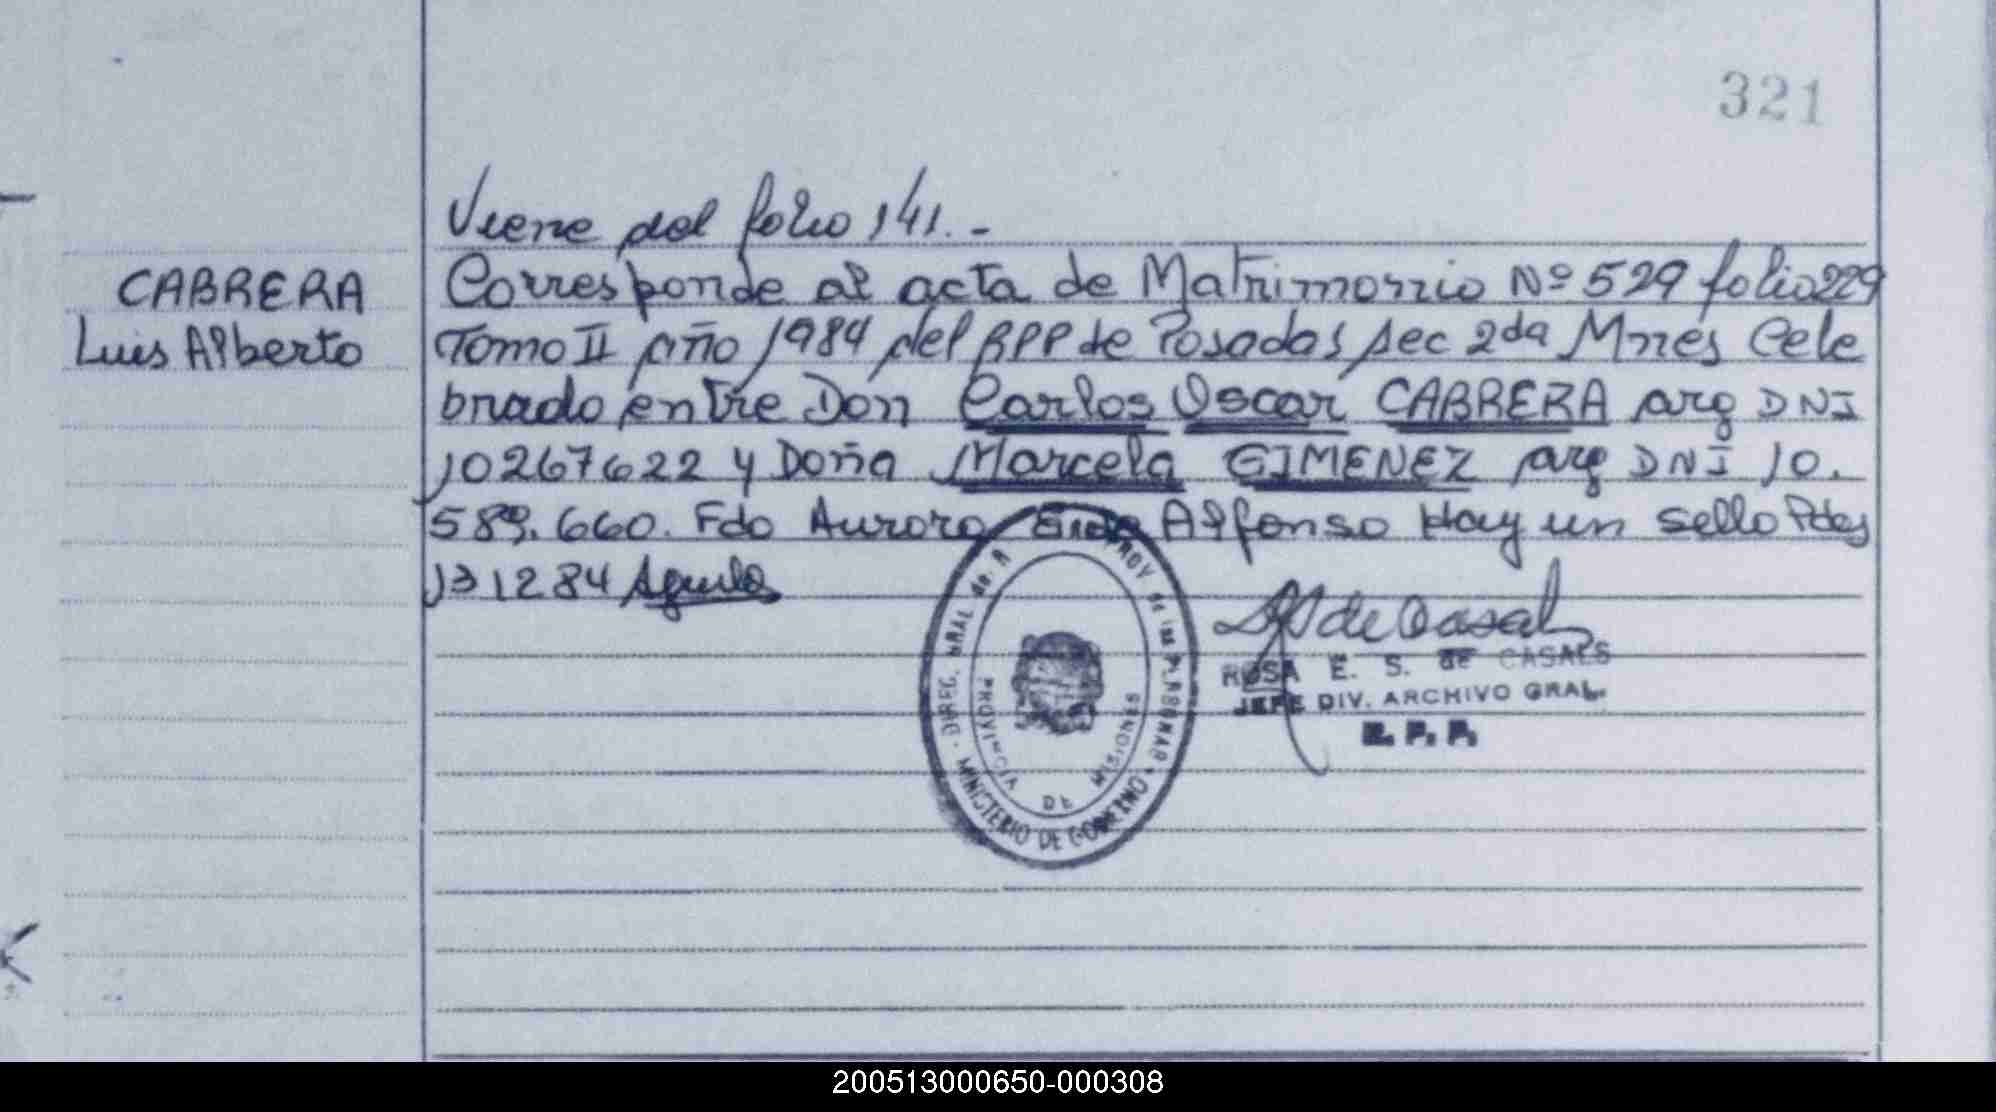 321
Viene del folio 141.-
CABRERA
Luis Alberto
Corresponde al acta de Matrimonio Nº 529 folio 229
Tomo II año 1984 del RPP de Posadas sec 2da Mnes Cele
brado entre Don Carlos Oscar CABRERA arg DNI
10267622 y Doña Marcela GIMENEZ arg DNI 10.
589.660. Fdo Aurora Alfonso Hay un sello Pdas
131284
DIREG. GRAL de. R PROV de las PERSONAS
MINISTERIO DE GOBIERNO
PROVINCIA DE MISIONES
de Casal
ROSA E. S. de CASALS
JEFE DIV. ARCHIVO GRAL.
R. P. P.
200513000650-000308